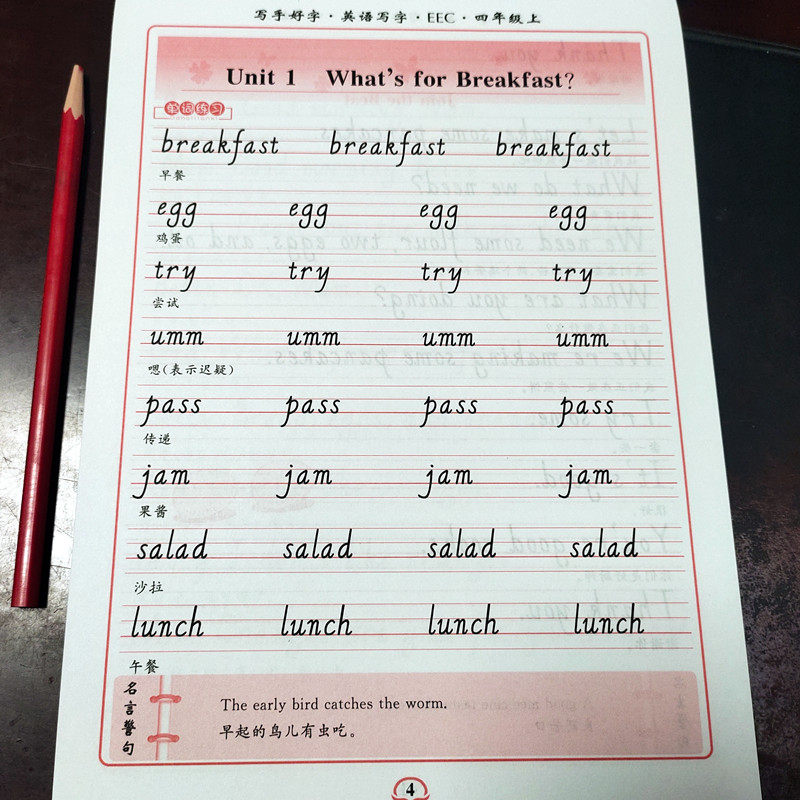 写手好字·英语写字·EEC·四年级上
Unit 1 What's for Breakfast?
单词练习
breakfast breakfast breakfast
早餐
egg egg egg egg
鸡蛋
try try try try
尝试
umm umm umm umm
嗯(表示迟疑)
pass pass pass pass
传递
jam jam jam jam
果酱
salad salad salad salad
沙拉
lunch lunch lunch lunch
午餐
名言警句
The early bird catches the worm.
早起的鸟儿有虫吃。
4